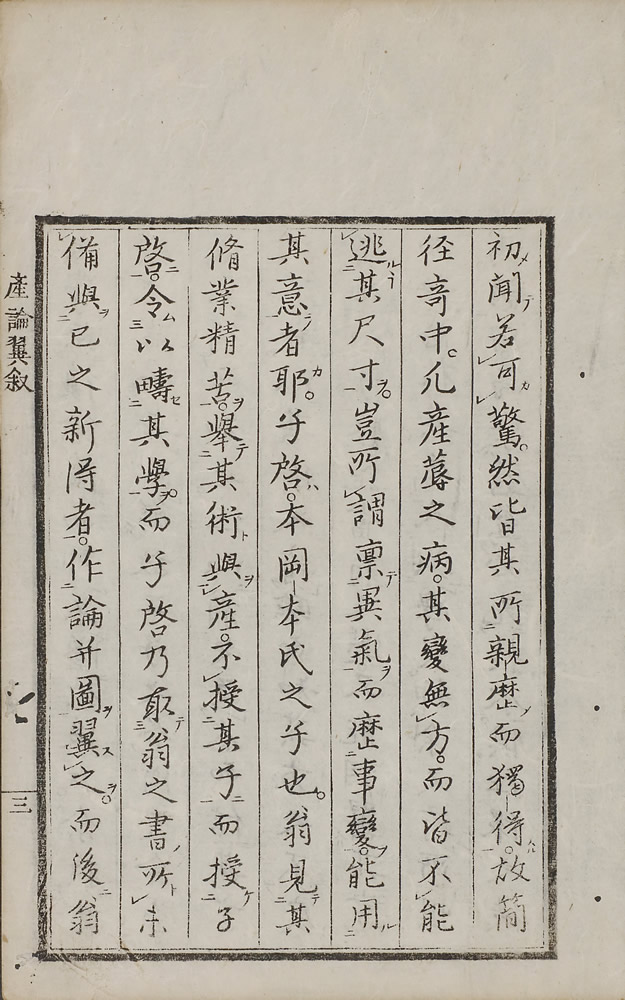 初聞若可驚。然皆其所親歴而獨得。故簡
径奇中。凢産蓐之病。其變無方。而皆不能
逃其尺寸。豈所謂禀異氣而歴事變。能用
其意者耶。子啓。本岡本氏之子也。翁見其
脩業精苦。舉其術與産。不授其子而授子
啓。令以疇其學。而子啓乃取翁之書所未
備與已之新得者。作論并圖翼之。而後翁
産論翼叙
三